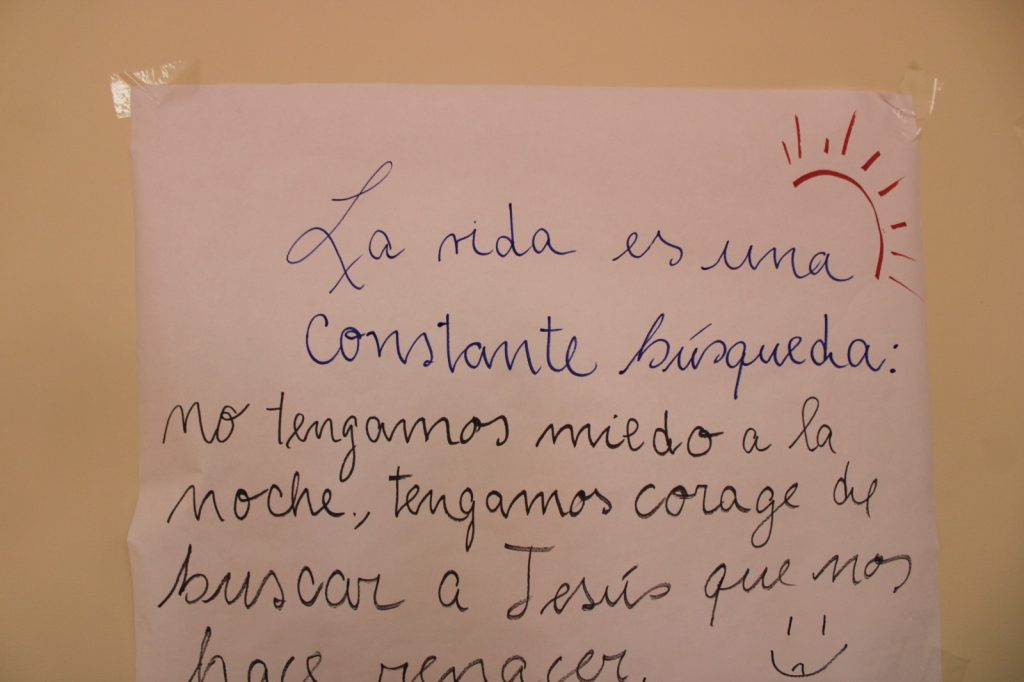 La vida es una
constante búsqueda:
no tengamos miedo a la
noche., tengamos corage de
buscar a Jesús que nos
hace renacer.